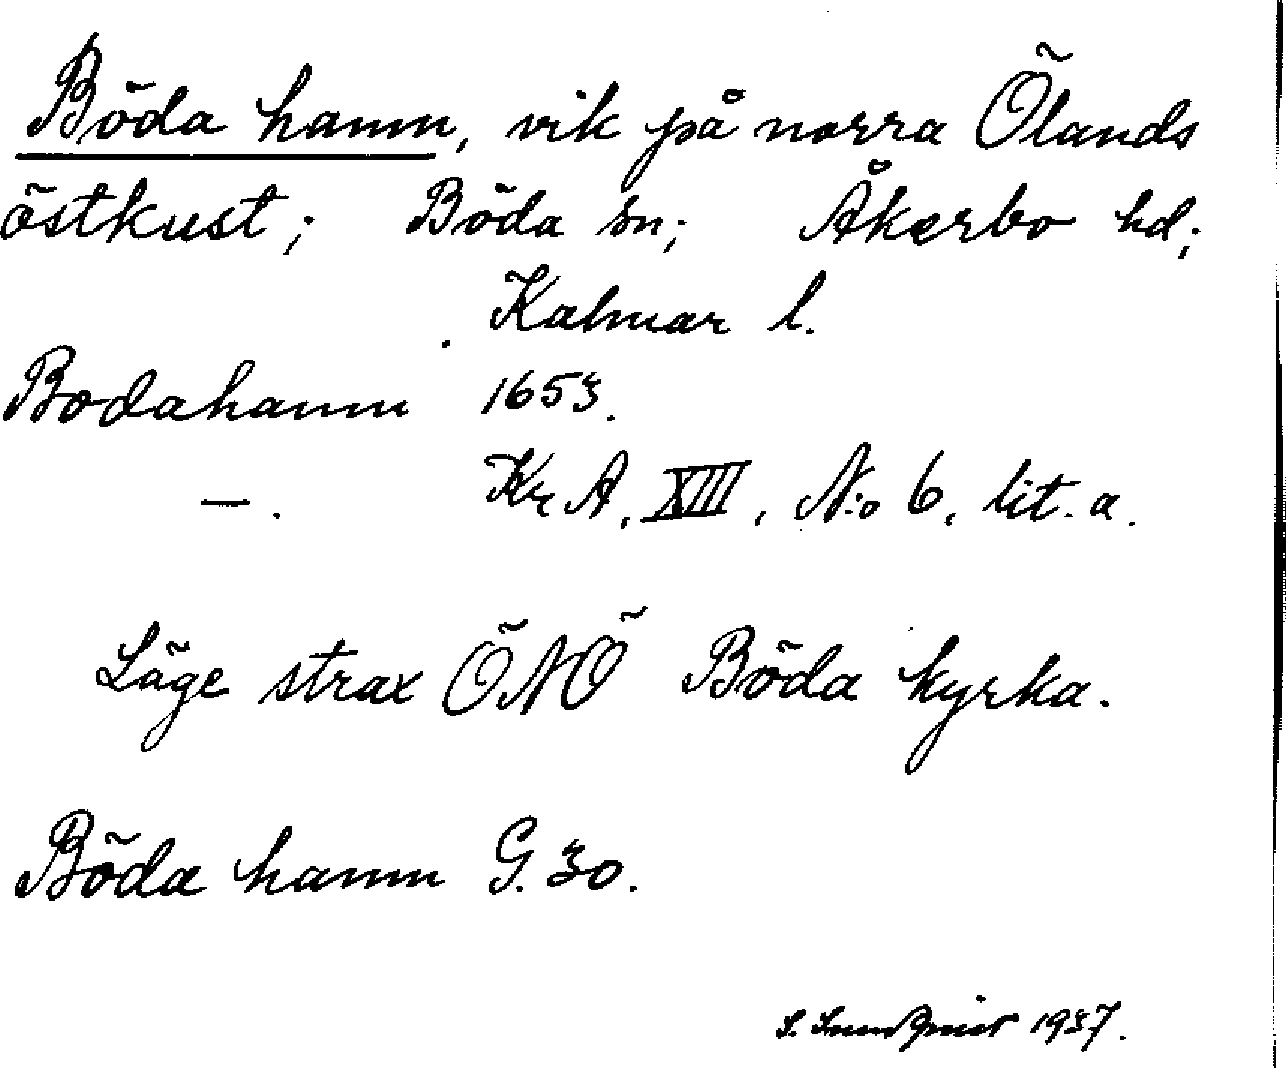 Böda hamn, vik på norra Ölands
östkust; Böda sn; Åkerbo hd;
Kalmar l.
Bodahamn 1653.
—. KrA, XIII, N:o 6, lit. a.
Läge strax ÖNÖ Böda kyrka.
Böda hamn G. 30.
1937.